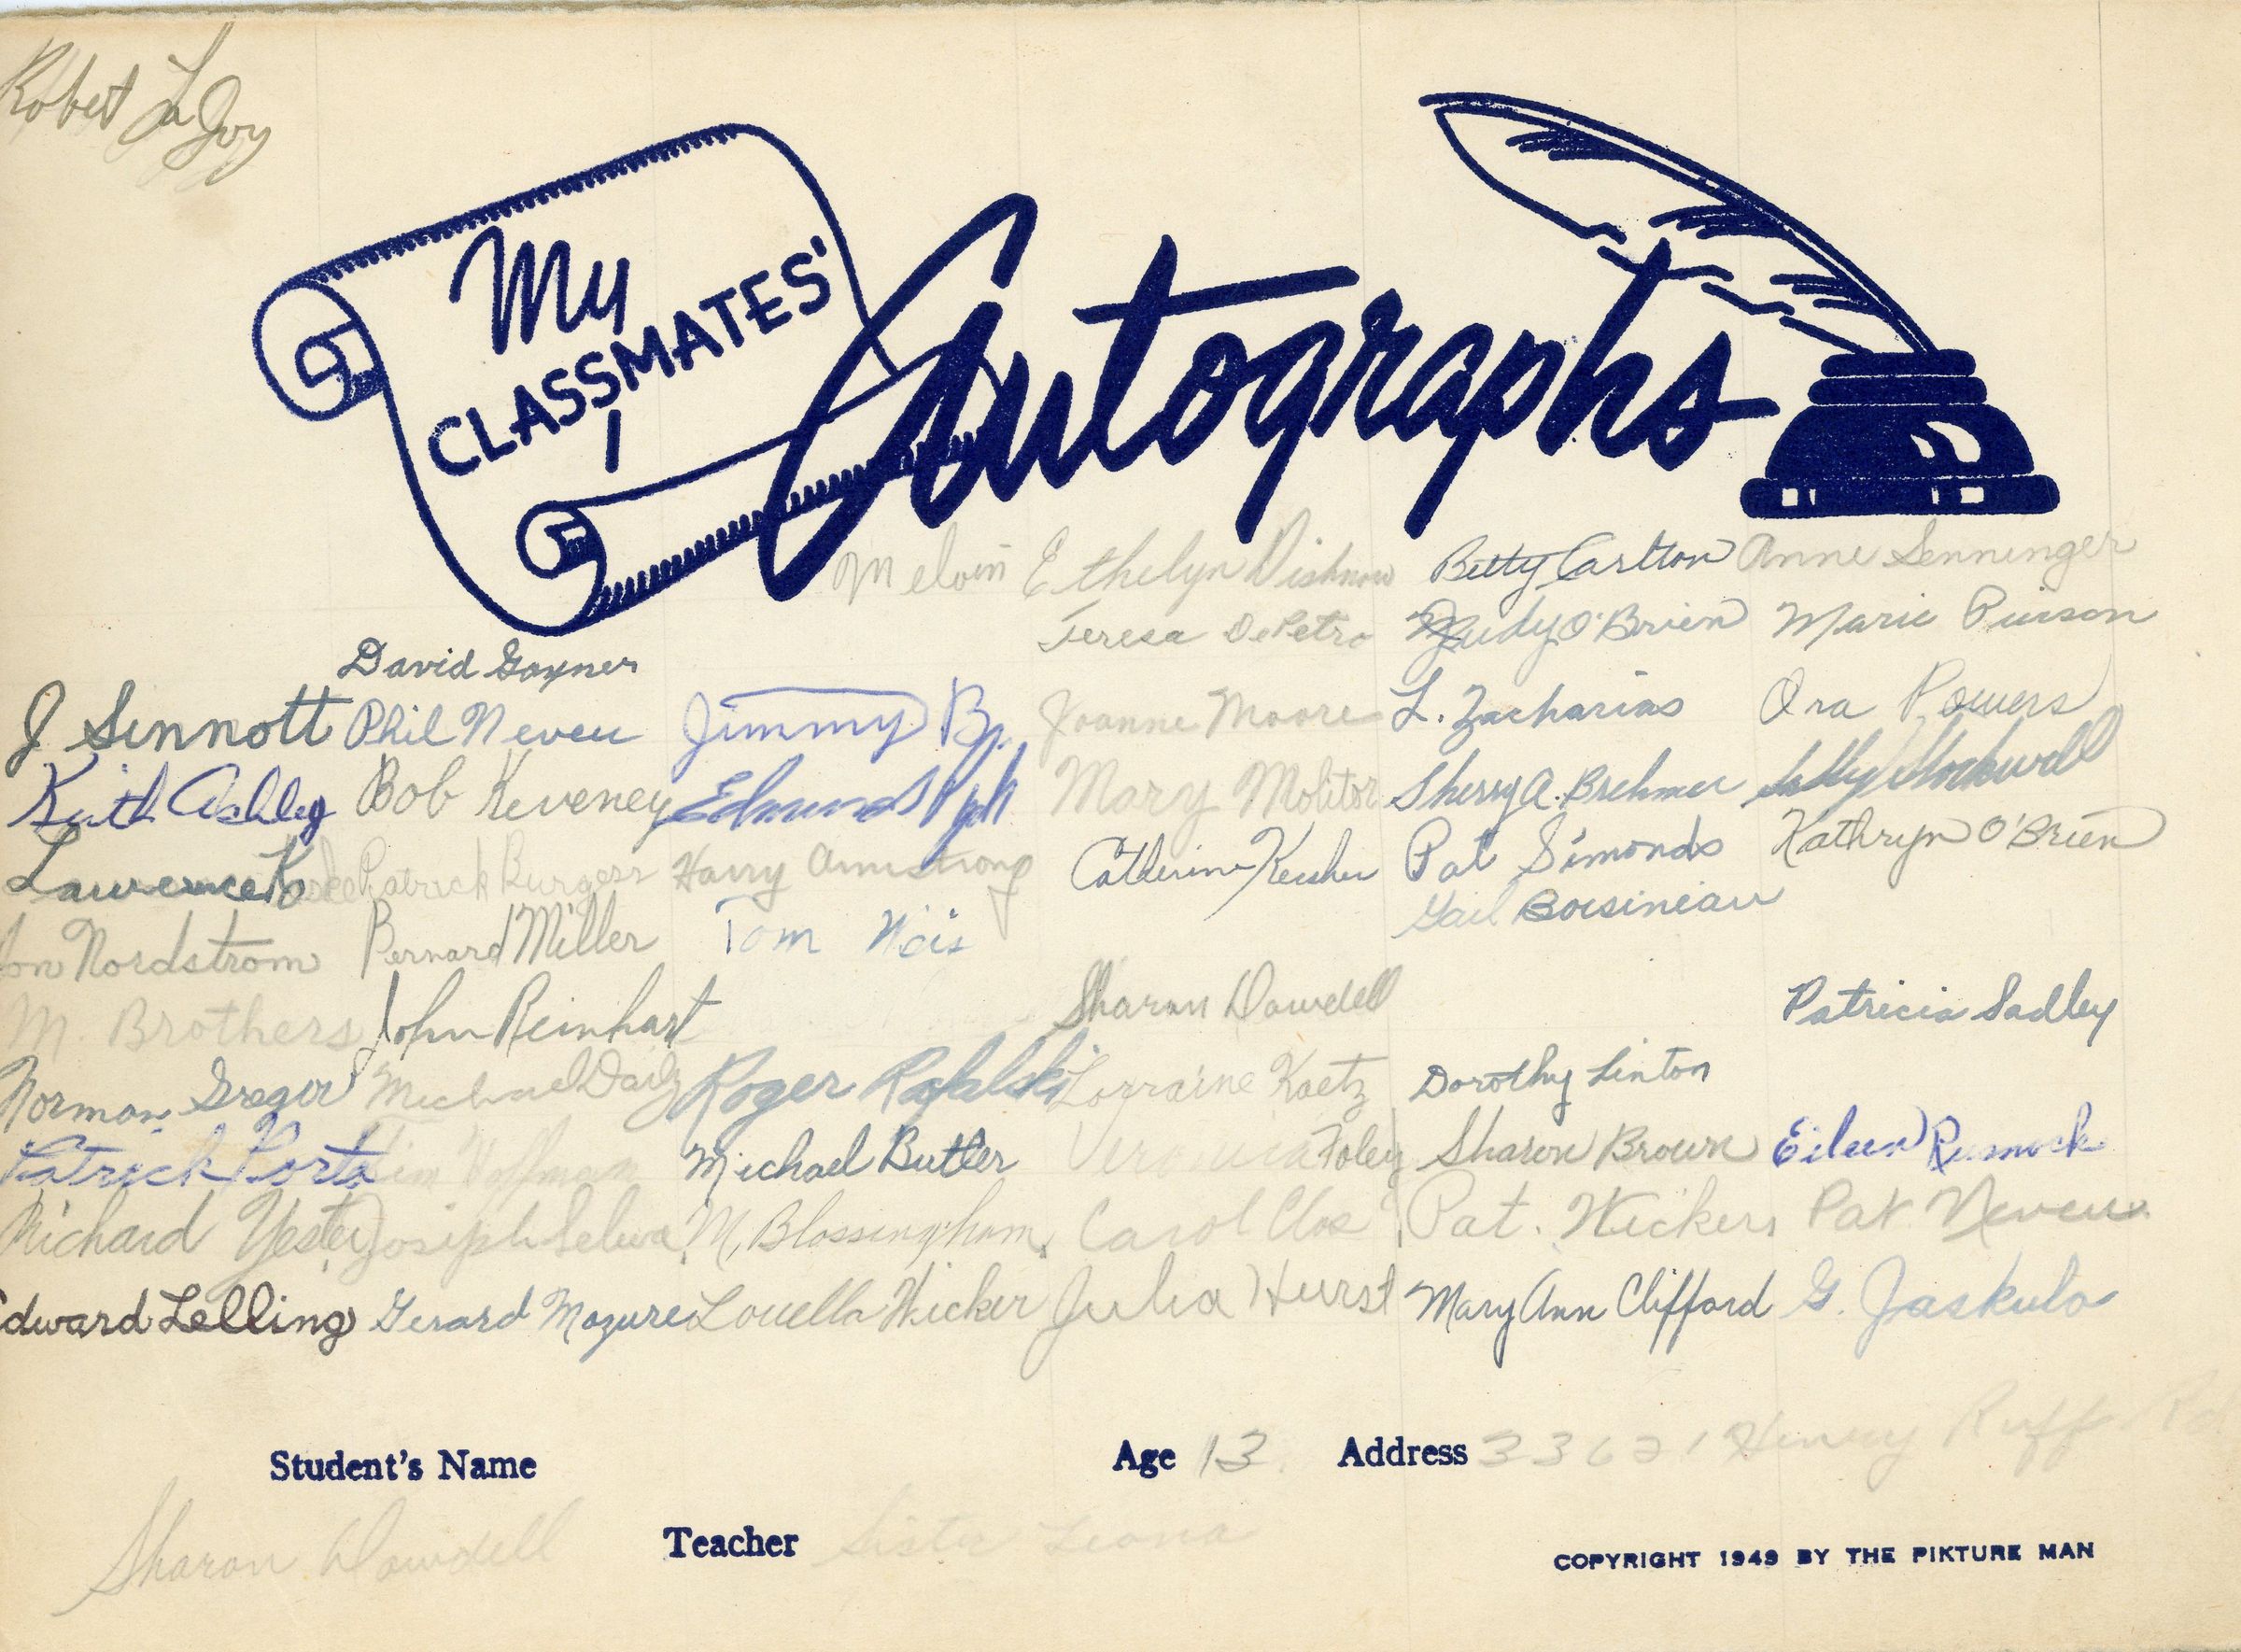 Robert LaJoy
My
CLASSMATES'
Autographs
Melvin Ethelyn Dishnow Betty Carlton Anne Senninger
Teresa DePetro Judy O'Brien Marie
David Gayner
J Sinnott Phil Neveu Jimmy B. Joanne Moore L. Zacharias Ora Powers
Keith Ashley Bob Keveney Edmund Mary Molitor Sherry A. Brehmer Sally Stockwell
Lawrence Patrick Burgess Harry Armstrong Catherine Pat Simonds Kathryn O'Brien
Gail Boisineau
Jon Nordstrom Bernard Miller Tom Weis
M. Brothers John Reinhart Sharon Dowdell Patricia Sadley
Norman Gregor Michael Daily Roger Rafalski Lorraine Kaetz Dorothy Linton
Patrick Porta Jim Hoffman Michael Butler Veronica Foley Sharon Brown Eileen
Richard Yester Joseph Selwa M. Blassingham Carol Clos Pat. Wickers Pat Neveu
Edward Lelling Gerard Mazure Louella Wicker Julia Hurst Mary Ann Clifford G. Jaskula
Student's Name Age 13 Address Henry Ruff Rd
Sharon Dowdell Teacher Sister Leona
COPYRIGHT 1949 BY THE PIKTURE MAN